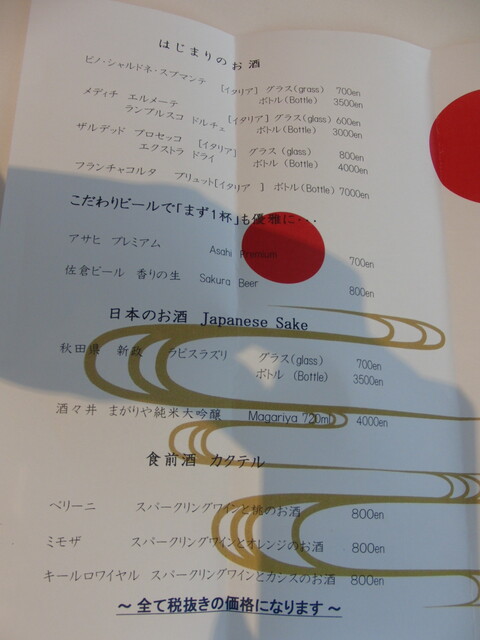 はじまりのお酒
ピノ・シャルドネ・スプマンテ [イタリア] グラス(grass) 700en
ボトル(Bottle) 3500en
メディチ エルメーテ
ランブルスコ ドルチェ [イタリア] グラス(glass) 600en
ボトル(Bottle) 3000en
ザルデッド プロセッコ [イタリア] グラス (glass) 800en
エクストラ ドライ ボトル (Bottle) 4000en
フランチャコルタ ブリュット[イタリア ] ボトル(Bottle) 7000en
こだわりビールで「まず1杯」も優雅に・・・
アサヒ プレミアム Asahi Premium 700en
佐倉ビール 香りの生 Sakura Beer 800en
日本のお酒 Japanese Sake
秋田県 新政 ラピスラズリ グラス(glass) 700en
ボトル (Bottle) 3500en
酒々井 まがりや純米大吟醸 Magariya 720ml 4000en
食前酒 カクテル
ベリーニ スパークリングワインと桃のお酒 800en
ミモザ スパークリングワインとオレンジのお酒 800en
キールロワイヤル スパークリングワインとカシスのお酒 800en
～ 全て税抜きの価格になります ～